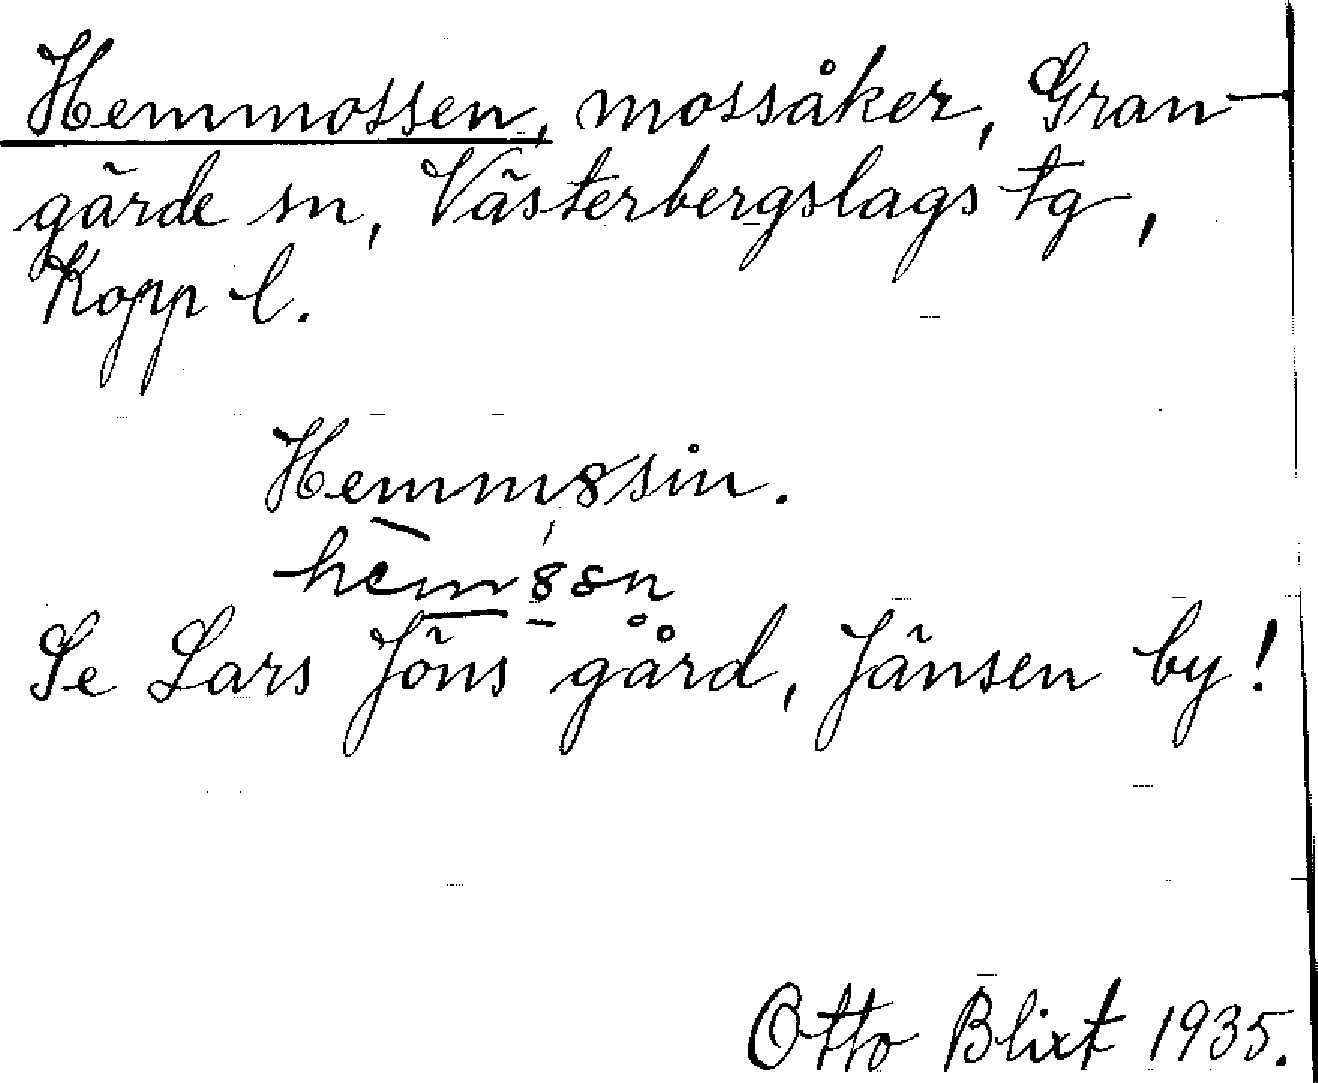 Hemmossen, mossåker, Gran-
gärde sn, Västerbergslags tg,
Kopp l.
Hemm8sin.
hèm8sn
Se Lars Jöns gård, Jänsen by!
Otto Blixt 1935.